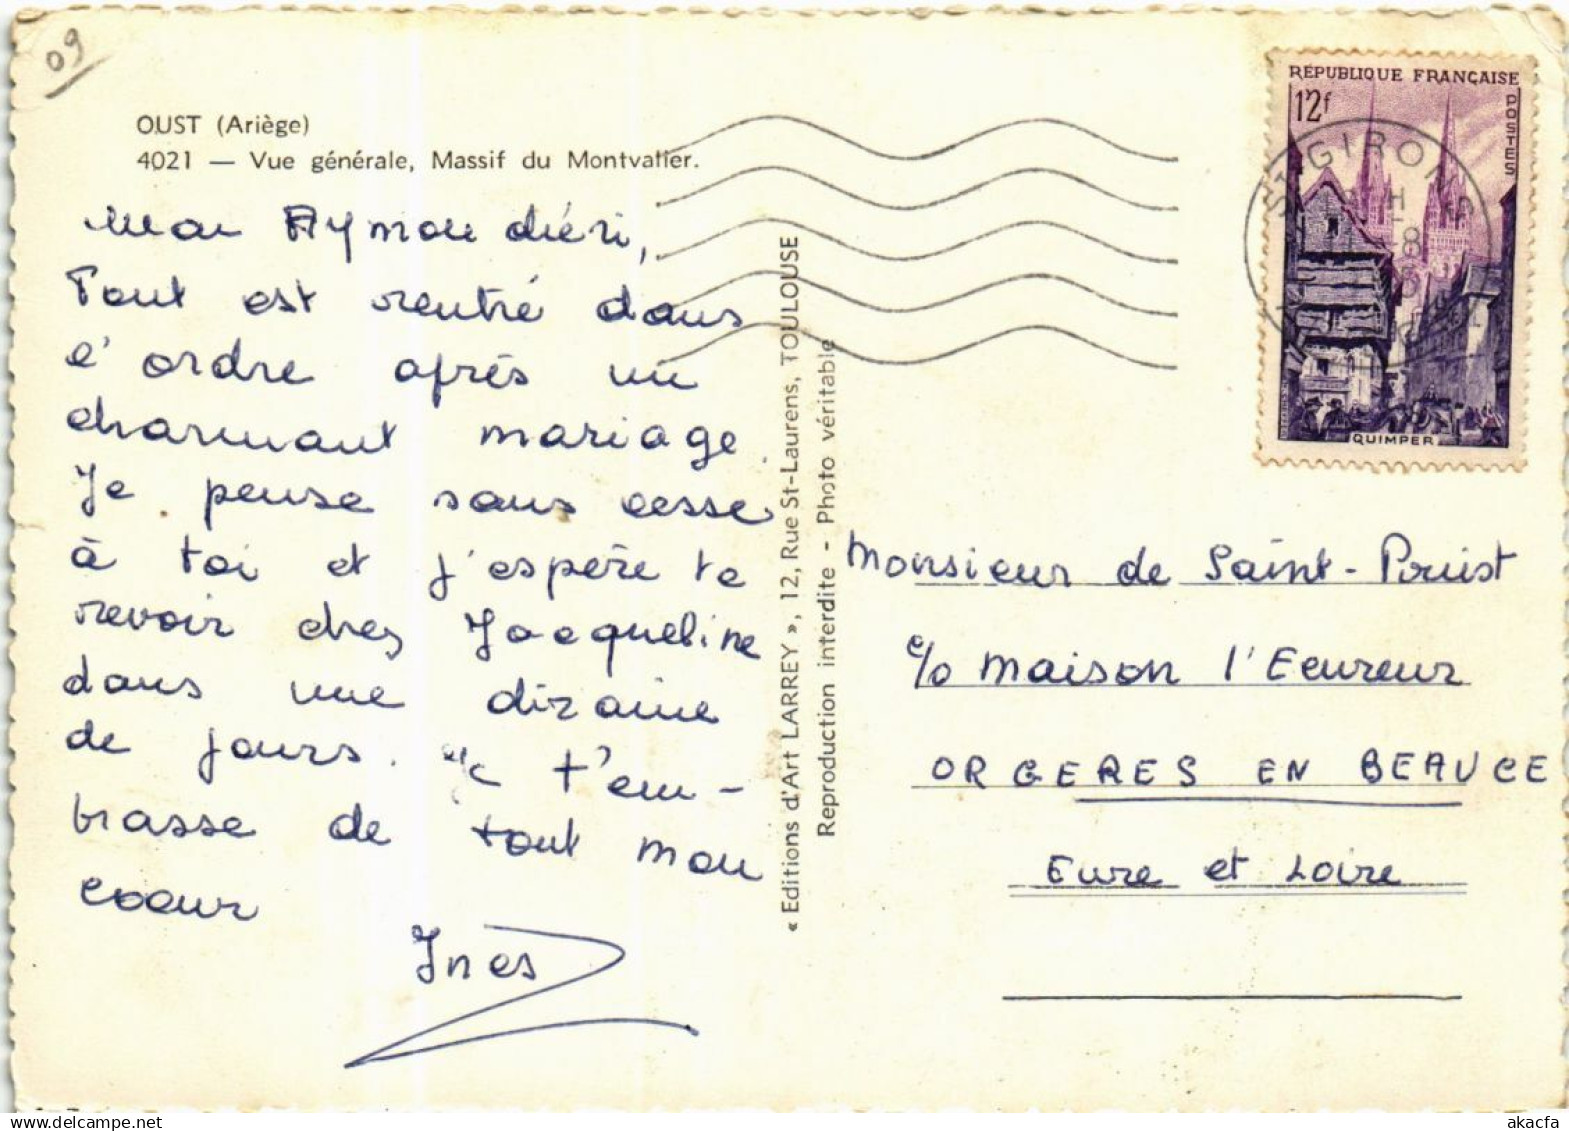 09
OUST (Ariège)
4021 — Vue générale, Massif du Montvalier.
Mon Aymon chéri,
Tout est rentré dans
l'ordre après un
charmant mariage.
Je pense sans cesse
à toi et j'espère te
revoir chez Jacqueline
dans une dizaine
de jours. Je t'em-
brasse de tout mon
coeur
Ines
« Editions d'Art LARREY », 12, Rue St-Laurens, TOULOUSE
Reproduction interdite - Photo véritable
RÉPUBLIQUE FRANÇAISE
12f
POSTES
QUIMPER
ST GIRONS
Monsieur de Saint-Priest
c/o Maison l'Ecureur
ORGERES EN BEAUCE
Eure et Loire
akacfa